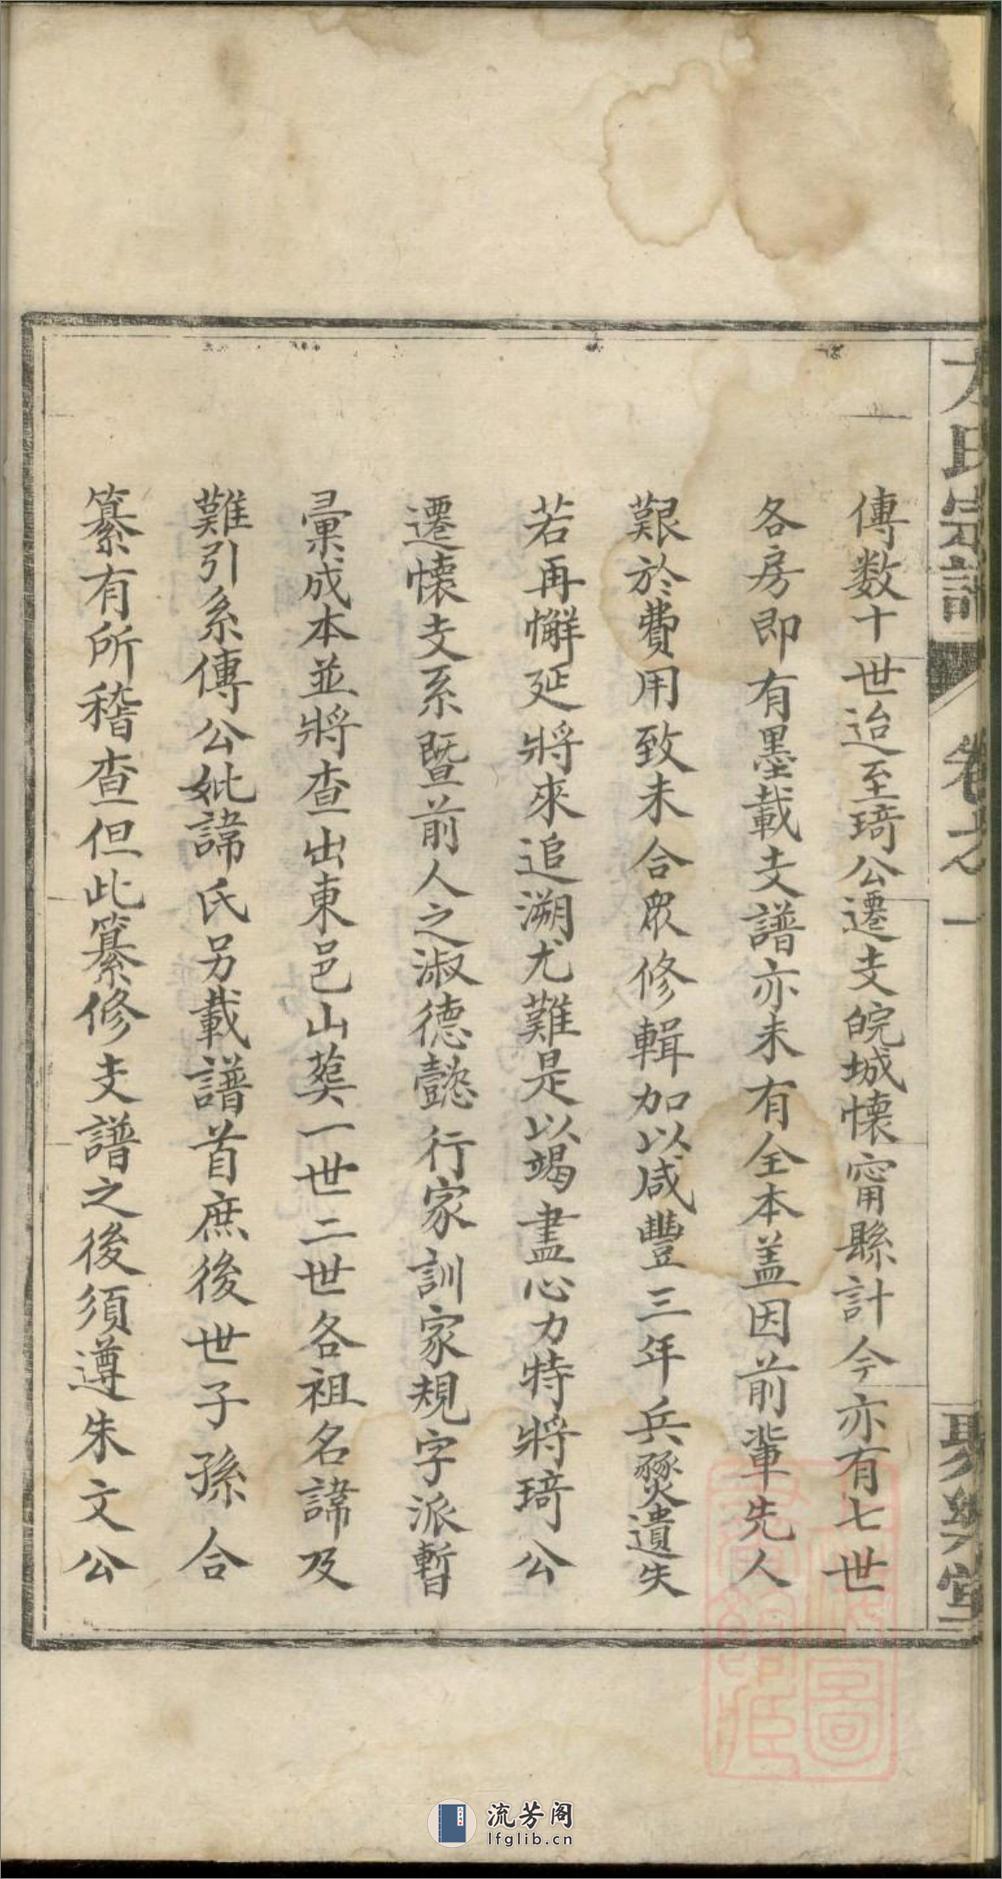 方氏宗譜 卷之一 聚樂堂
傳数十世迨至琦公遷支皖城懷甯縣計今亦有七世
各房即有墨載支譜亦未有全本盖因前輩先人
艱於費用致未合眾修輯加以咸豐三年兵燹遺失
若再懈延將來追溯尤難是以竭盡心力特將琦公
遷懷支系暨前人之淑德懿行家訓家規字派暫
彙成本並將查出東邑山塟一世二世各祖名諱及
難引系傳公妣諱氏另載譜首庶後世子孫合
纂有所稽查但此纂修支譜之後須遵朱文公
流芳阁
lfglib.cn